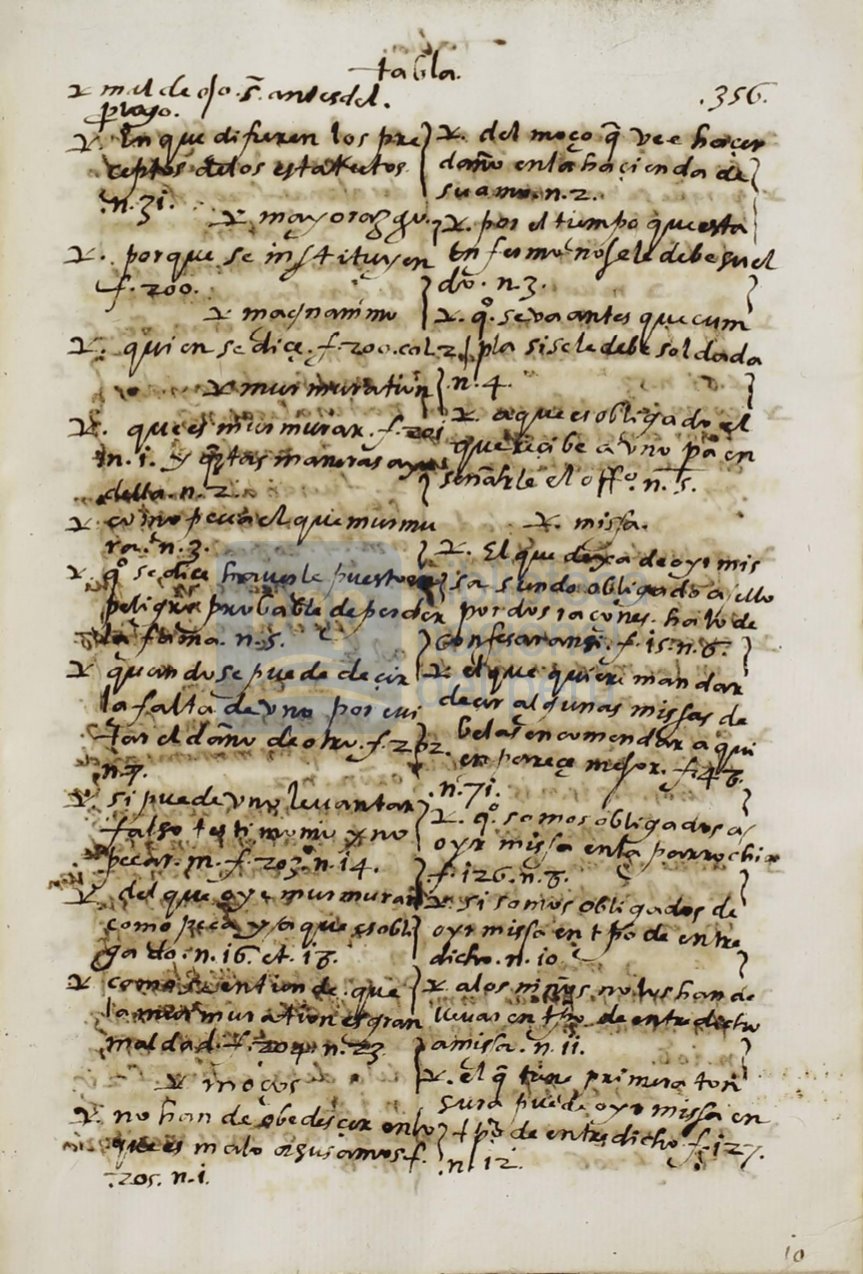 tabla.
.356.
v mal de ojo. S. antes del.
plago.
v. En que difieren los pre
ceptos de los estatutos
.n.31.
v mayorazgo.
v. porque se instituyen
f.200.
v magnanimo
v. quien se dice. f.200.col.2.
v murmuration
v. que es murmurar. f.201
n.1. y qtas maneras ay
della. n.2.
v como peca el que murmu
ra. n.3.
v. qo se dice haverle puesto en
peligro probable de perder
la fama. n.5.
v quando se puede decir
la falta de uno por evi
tar el daño de otro. f.202.
.n.7.
v. si puede uno levantar
falso testimonio y no
pecar. m. f.203. n.14.
v del que oye murmurar
como peca y a que es obli
gado. n.16. et. 18.
v como se entiende que
la murmuration es gran
maldad. f.204. n.23
v moços
v. no han de obedescer en lo
que es malo a sus amos. f.
.205. n.1.
v. del moço q vee haçer
daño en la haçienda de
su amo. n.2.
v. por el tiempo que esta
enfermo no se le debe su el
do. n.3.
v. qo. se va antes que cum
pla si se le debe soldada
.n.4.
v. a que es obligado el
que recibe a uno pa en
señarle el offo. n.5.
v. missa.
v. El que dexa de oyr mis
sa siendo obligado a ello
por dos raçones. halo de
confesar ansi. f.15. n.8.
v el que quiere mandar
decir algunas missas de
belas encomendar a qui
en pareçe mejor. f.48.
.n.71.
v. qo. somos obligados a
oyr missa en la parrochia
f.126. n.8.
v si somos obligados de
oyr missa en tpo de entre
dicho. n.10
v a los niños no los han de
llevar en tpo de entredicho
a missa. n.11.
v. el q tiene primera ton
sura puede oyr missa en
tpo de entredicho f.127.
.n.12.
10